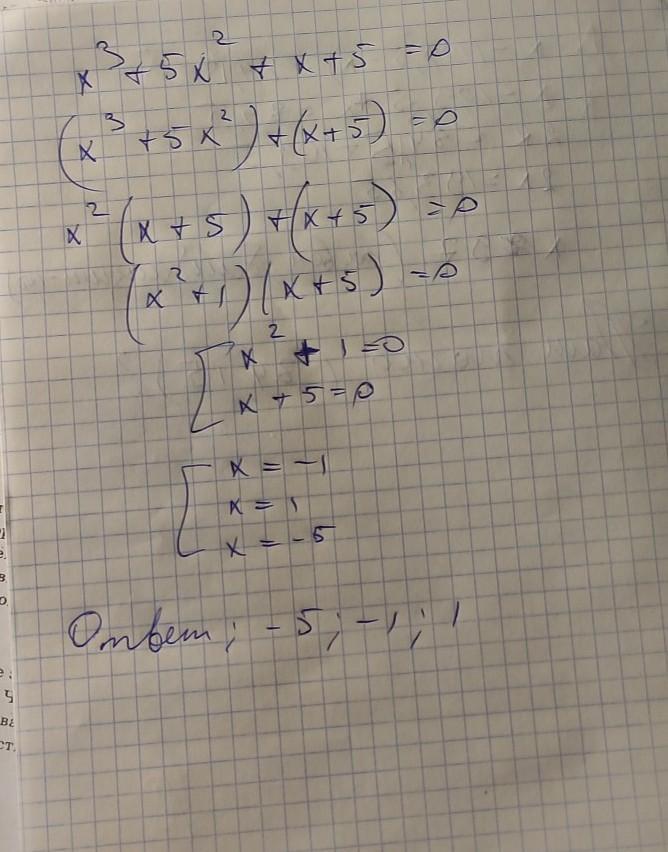 x³ + 5x² + x + 5 = 0
(x³ + 5x²) + (x + 5) = 0
x² (x + 5) + (x + 5) = 0
(x² + 1) (x + 5) = 0
[ x² + 1 = 0
x + 5 = 0
[ x = -1
x = 1
x = -5
Ответ; -5; -1; 1